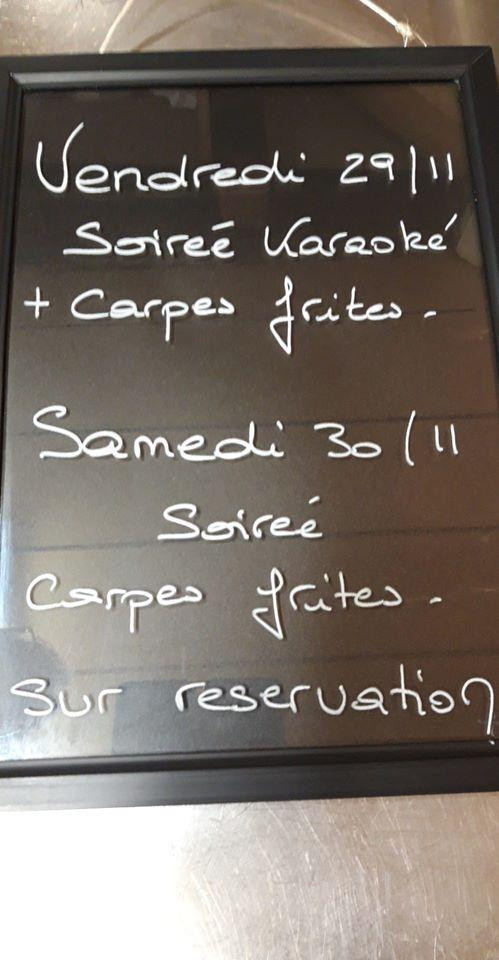 Vendredi 29/11
Soireé Karaoké
+ Carpes frites.
Samedi 30/11
Soireé
Carpes frites.
Sur reservation